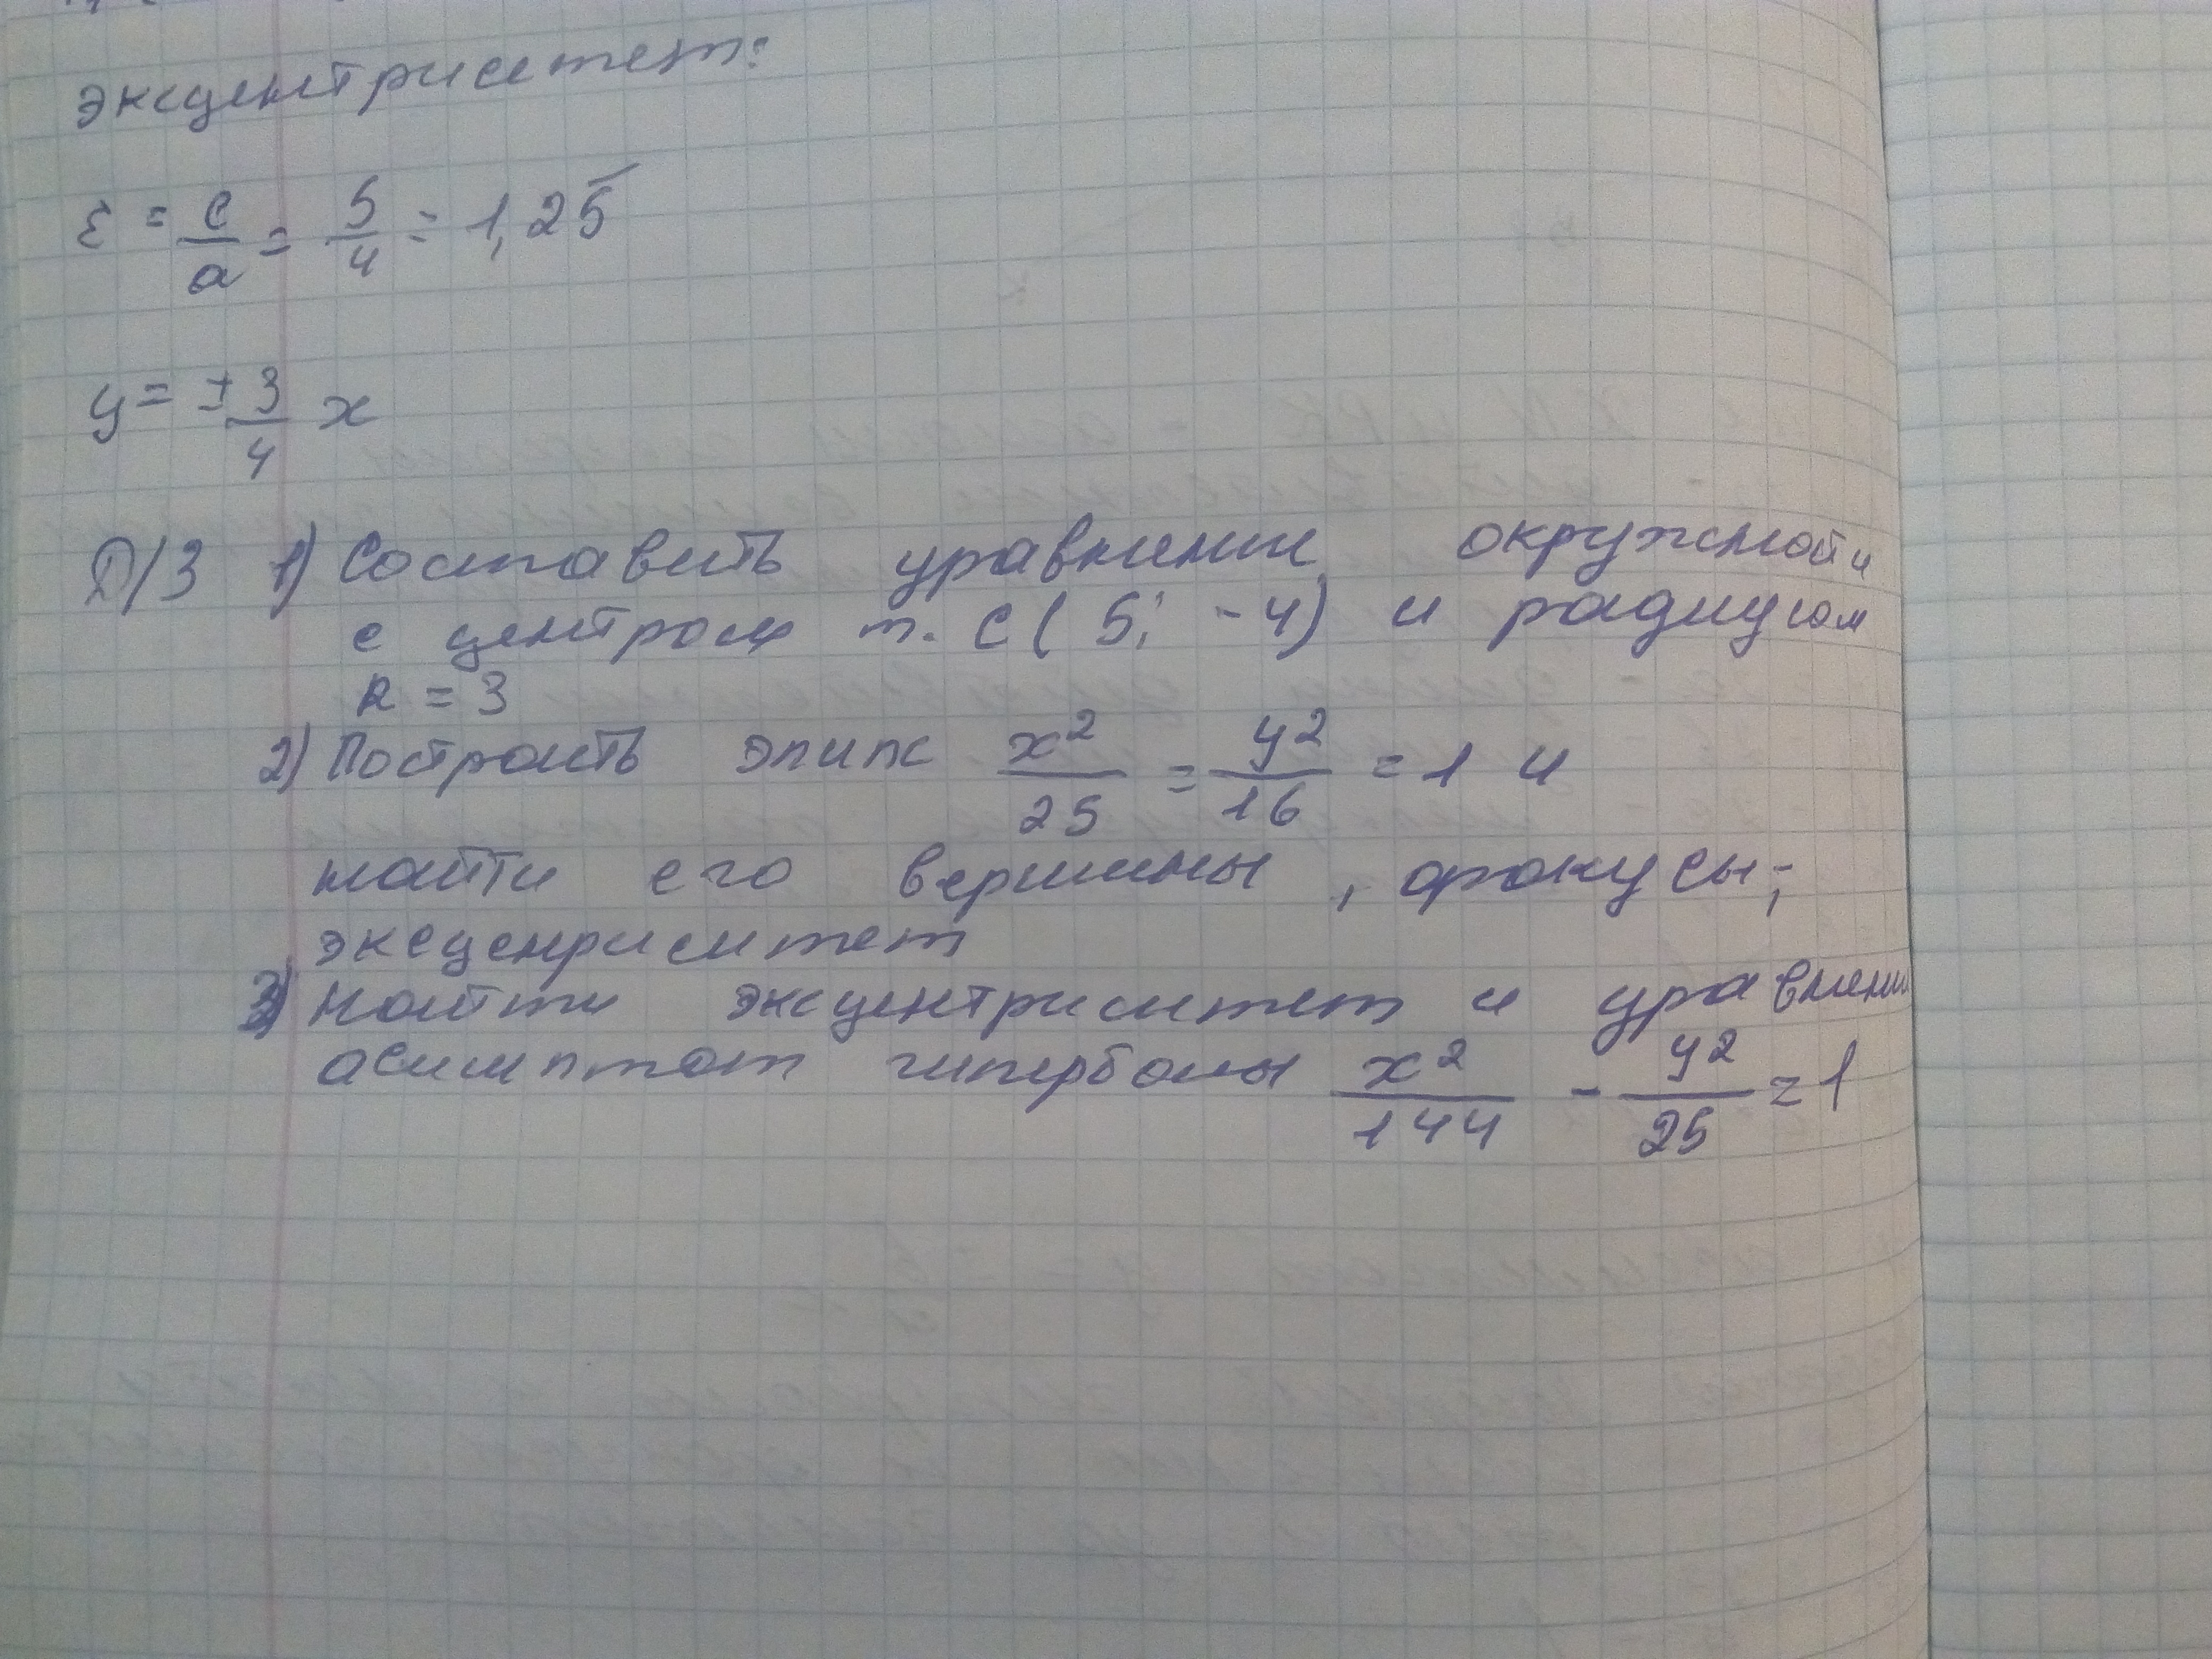 эксцентриситет:
ε = c/a = 5/4 = 1,25
y = ± 3/4 x
Д/З 1) Составить уравнение окружности
с центром т. С ( 5; -4) и радиусом
R = 3
2) Построить элипс x²/25 = y²/16 = 1 и
найти его вершины, фокусы;
эксценриситет
3) Найти эксцентриситет и уравнени
асимптот гиперболы x²/144 - y²/25 = 1